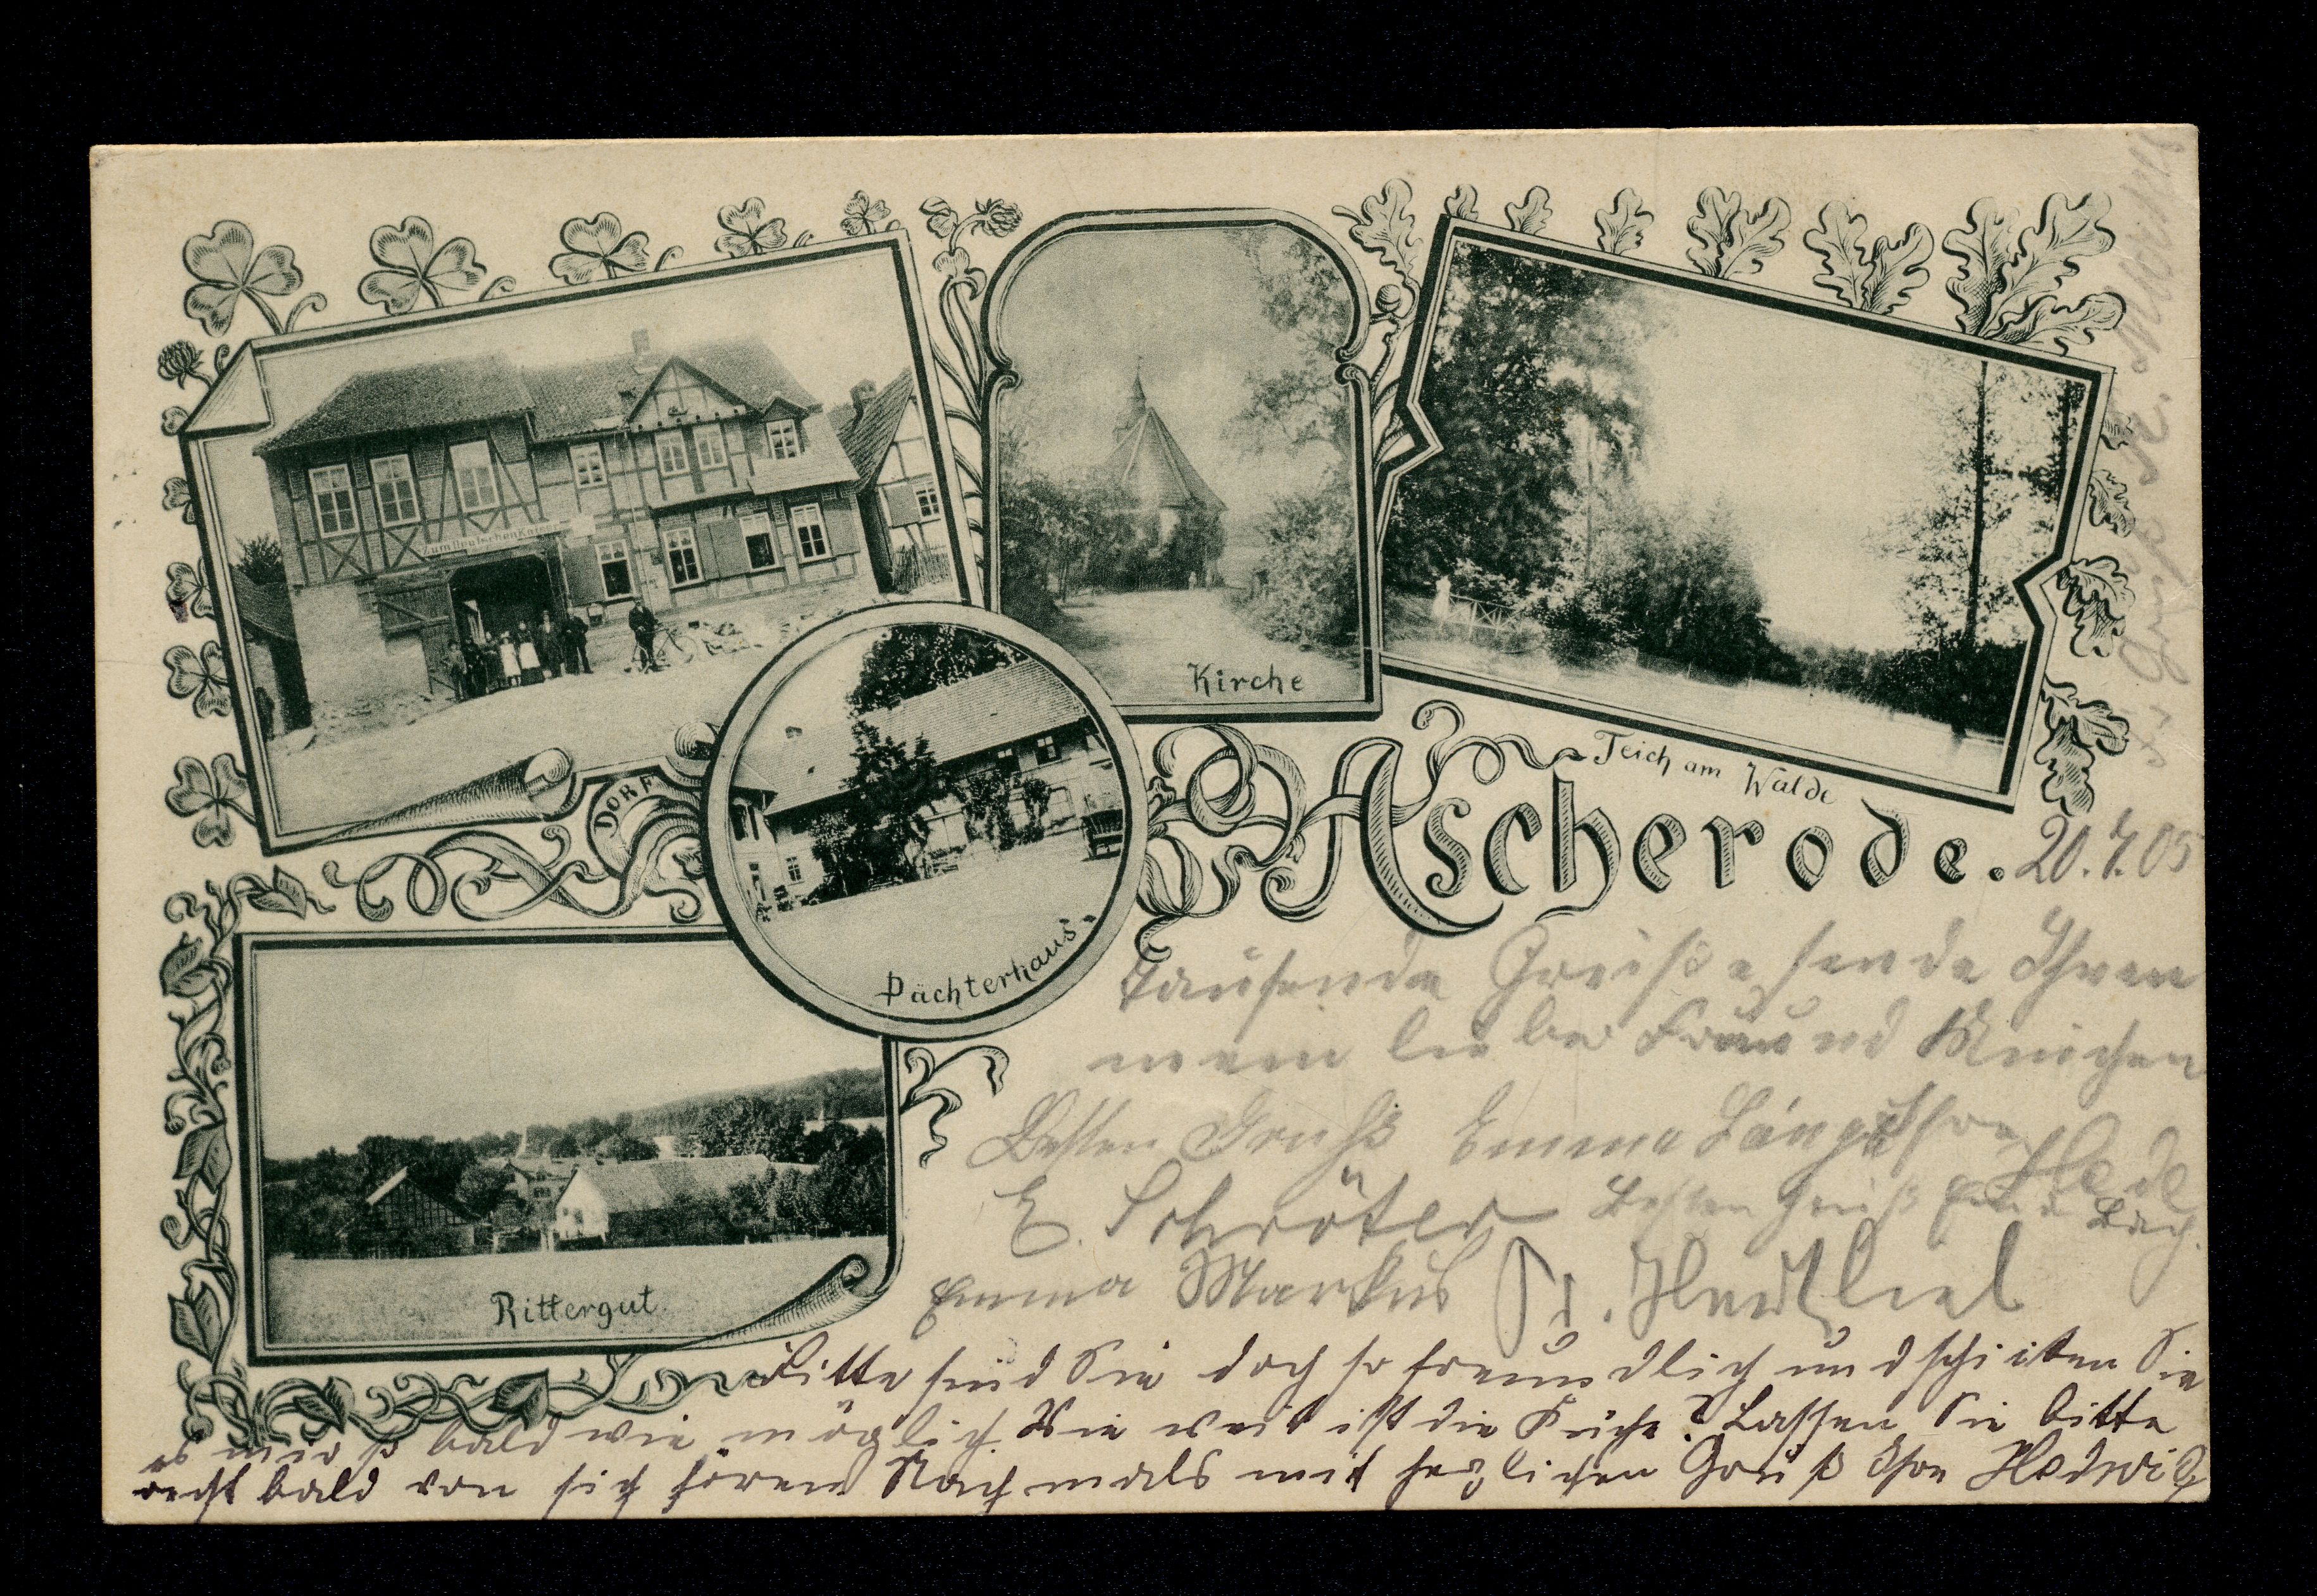 Zum Deutschen Kaiser
Kirche
Teich am Walde
DORF
Ascherode.
Pächterhaus
Rittergut
20.7.05
Tausende Grüße sende Ihnen
mein lieber Freund
Besten Gruß Emma Ihre Hede
E. Schröter Besten Gruß
Emma Markus
Bitte sind Sie doch so freundlich und schicken Sie
es mir so bald wie möglich. Wie weit ist die Küche? Lassen Sie bitte
recht bald von sich hören Nochmals mit herzlichen Gruß Ihre Hedwig